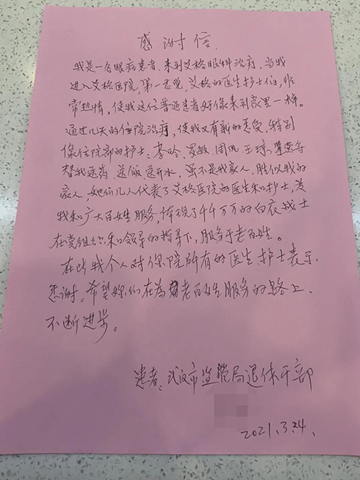 感谢信
我是一名眼病患者,来到艾格眼科治病,当我
进入艾格医院,第一感觉,艾格的医生护士们,非
常热情,使我这位普通患者好像来到家里一样。
通过几天的住院治疗,使我又有新的感受,特别
像住院部的护士:李玲、罗敏、周讯、王瑶、
替我送药、送饭、送开水,虽不是我家人,胜似我的
家人,她们几人代表了艾格医院的医生和护士,为
我和广大百姓服务,体现了千千万万的白衣战士
在党组织和领导的指导下,服务于老百姓。
在此我个人对你院所有的医生护士表示
感谢。希望她们在为老百姓服务的路上、
不断进步。
患者:武汉市监管局退休干部
2021.3.24.